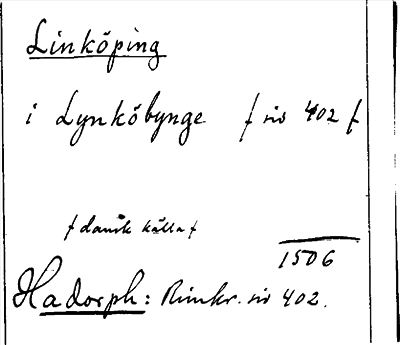 Linköping
i Lynköbynge / sid 402 /
/ dansk källa /
1506
Hadorph: Rimkr. sid 402.